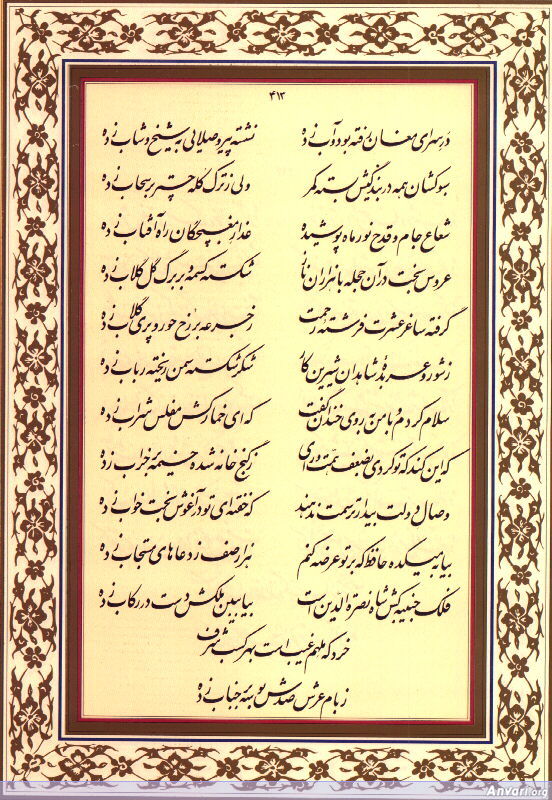 ۴۱۳
در سرای مغان رفته بود و آب زده نشسته پیر و صلایی به شیخ و شاب زده
سبوکشان همه در بندگیش بسته کمر ولی ز ترک کله چتر بر سحاب زده
شعاع جام و قدح نور ماه پوشیده عذار مغبچگان راه آفتاب زده
عروس بخت در آن حجله با هزاران ناز شکسته کسمه و بر برگ گل گلاب زده
گرفته ساغر عشرت فرشته رحمت ز جرعه بر رخ حور و پری گلاب زده
ز شور و عربده شاهدان شیرین کار شکر شکسته سمن ریخته رباب زده
سلام کردم و با من به روی خندان گفت که ای خمارکش مفلس شراب زده
که این کند که تو کردی به ضعف همت و رای ز گنج خانه شده خیمه بر خراب زده
وصال دولت بیدار ترسمت ندهند که خفته‌ای تو در آغوش بخت خواب زده
بیا به میکده حافظ که بر تو عرضه کنم هزار صف ز دعاهای مستجاب زده
فلک جنیبه کش شاه نصرة الدین است بیا ببین ملکش دست در رکاب زده
خرد که ملهم غیب است بهر کسب شرف
ز بام عرش صدش بوسه بر جناب زده
Anvari.org